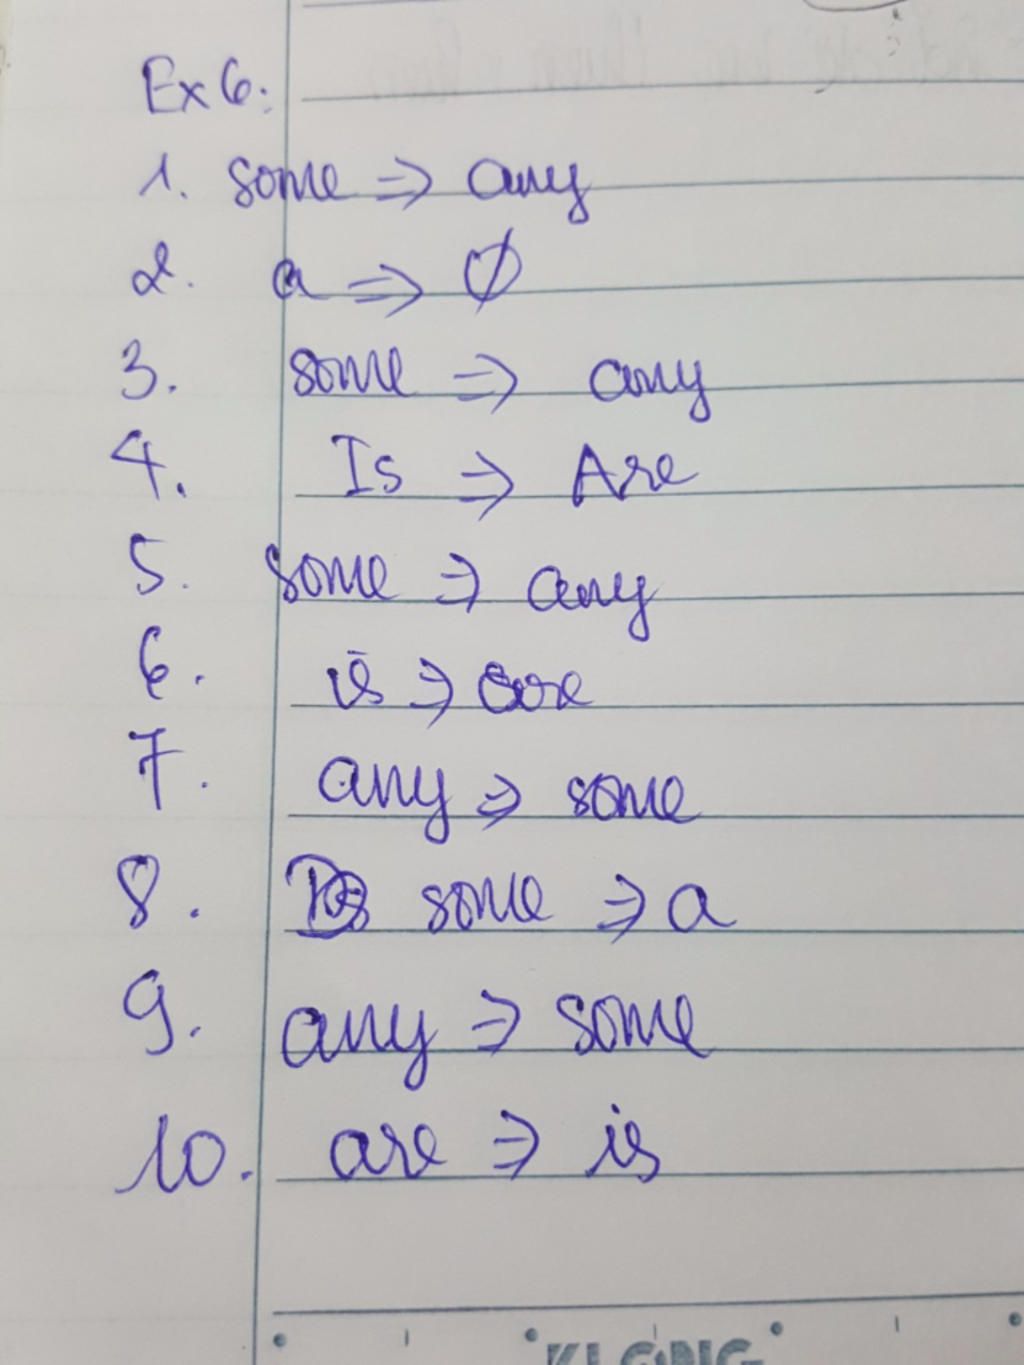 Ex 6:
1. some => any
2. a => Ø
3. some => any
4. Is => Are
5. some => any
6. is => are
7. any => some
8. some => a
9. any => some
10. are => is